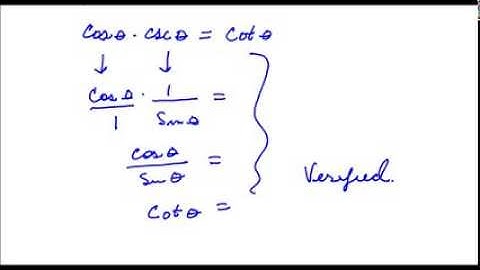 cosθ · cscθ = cotθ
cosθ/1 · 1/sinθ =
cosθ/sinθ =
cotθ =
Verified.